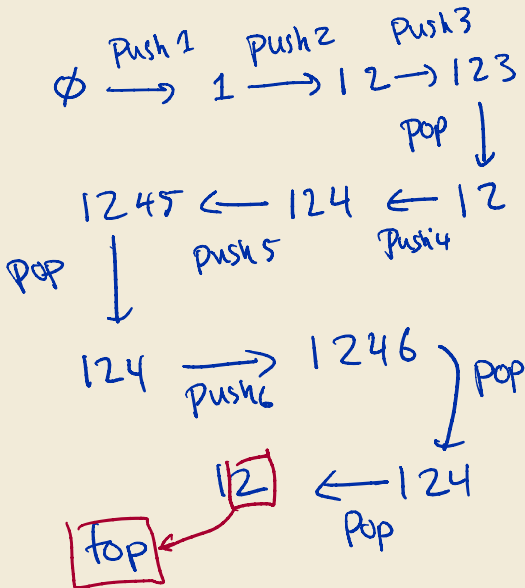 Push 1 Push 2 Push 3
∅ → 1 → 12 → 123
Pop
1245 ← 124 ← 12
Pop Push 5 Push 4
124 → 1246
Push 6 Pop
12 ← 124
Pop
top